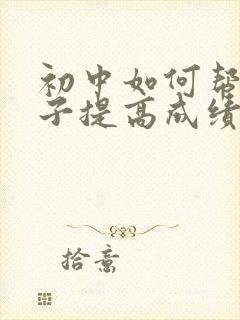 初中如何帮
子提高成绩
拾意